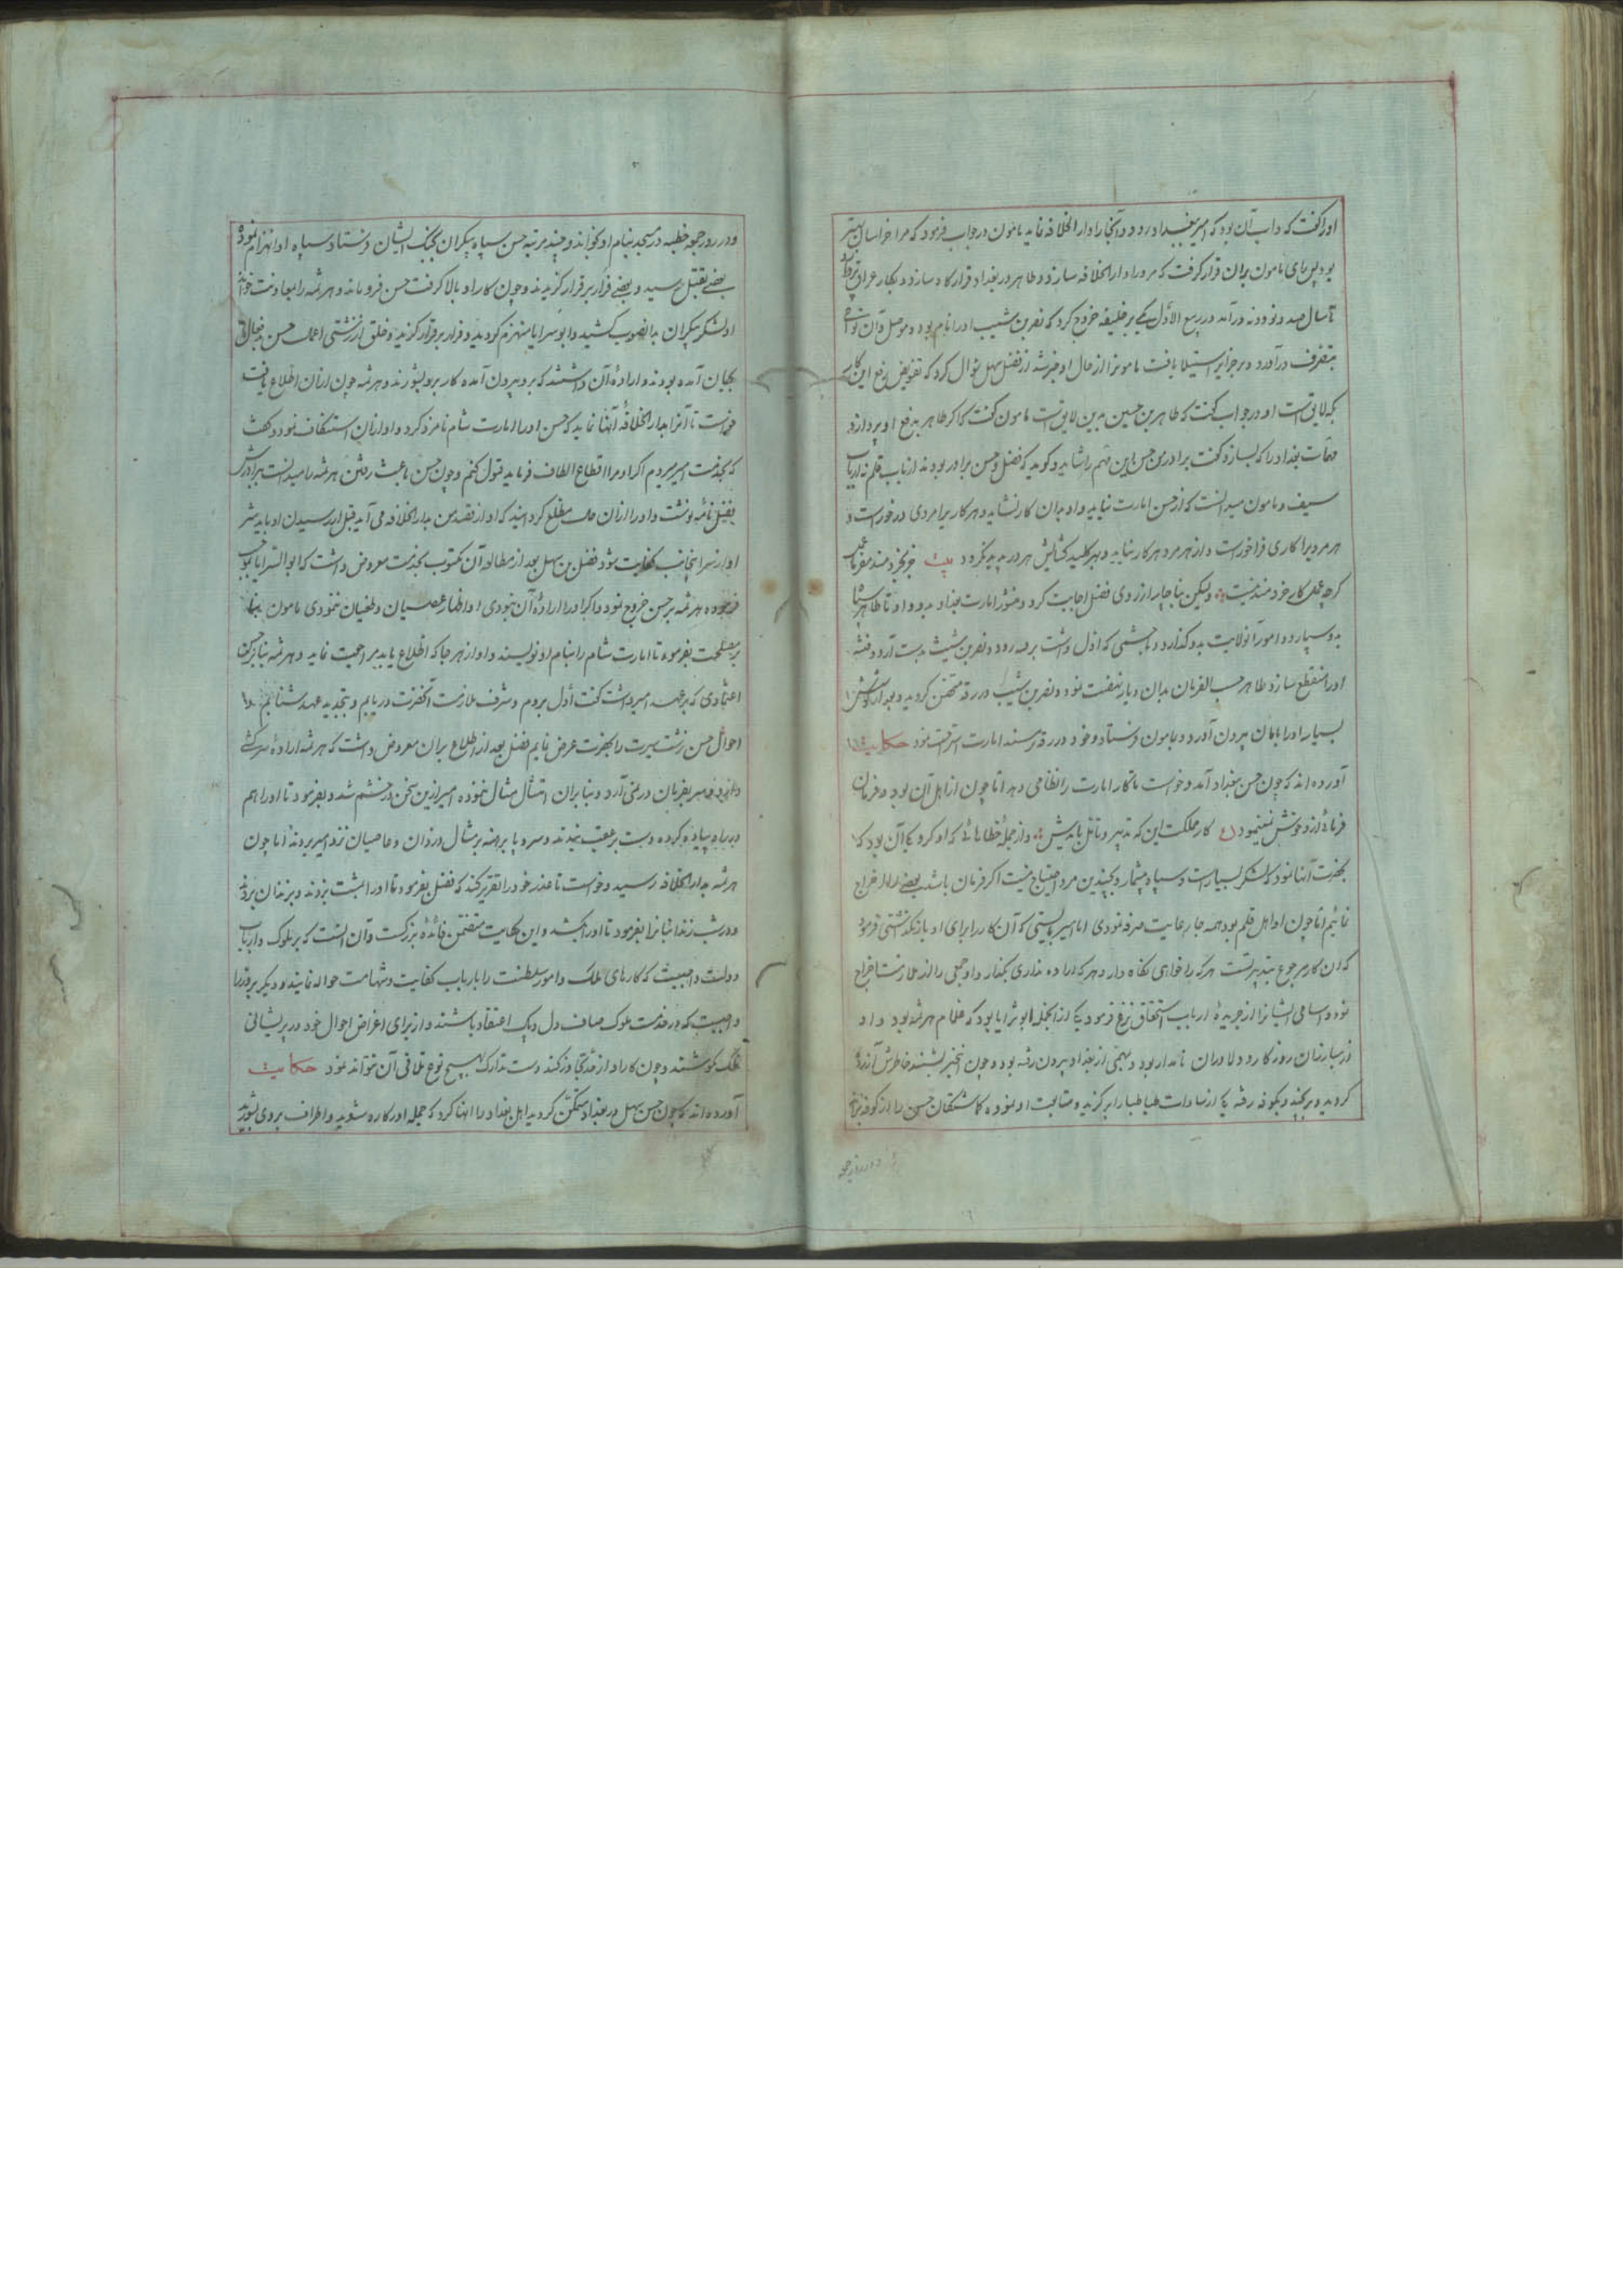 او را گفت که داب آن بود که امیر ببغداد رود و آنجا را دار الخلافه نماید مامون در جواب فرمود که مرا خراسان بهتر
بود پس رای مامون بران قرار گرفت که مرو را دار الخلافه سازد و طاهر در بغداد قرارگاه سازد و بکار عراق
تا سال صد و نود و نه در آمد در ربیع الاول یکی بر خلیفه خروج کرد که نصر بن شیب او را نام بوده موصل و آن نواحی
بتصرف درآورد و بر جزایر استیلا یافت مامون را از حال او خبر شد از فضل سهل سؤال کرد که تفویض رفع این کار
بکه لایق است او در جواب گفت که طاهر بن حسین بدین لایق است مامون گفت که اگر طاهر به رفع او پردازد
مهمات بغداد را که بسازد گفت برادر من حسن این مهم را شاید و گوید که فضل و حسن برادر بودند از باب قلم نه ارباب
سیف و مامون میدانست که از حسن امارت نیاید و او بدان کار نشاید و هر کار را مردی درخور است و
هر مرد را کاری فراخور است و از هر مرد هر کار نیاید و بهر کلید گشایش هر در پدید نگردد بیت جز بخردمند مفرما عمل
گرچه عمل کار خردمند نیست ولیکن بناچار از روی فضل اجابت کرد و منشور امارت بغداد بدو داد تا طاهر سپاه
بدو سپارد و امور آن ولایت بدو گذارد و با حشمی که اول داشت برقه رود و نصر بن شیث بدست آرد و فتنه
او را منقطع سازد طاهر حسب الفرمان بدان دیار نهضت نمود و نصر بن شیب در رقه متحصن گردید و بعد از کوشش
بسیار او را بامان بیرون آورد و بمامون فرستاد و خود در رقه بر مسند امارت استراحت نمود حکایت
آورده اند که چون حسن ببغداد آمد و خواست تا کار امارت را نظامی دهد اما چون از اهل آن نبود و فرمان
فرمائی ازو خوش نمینمود ع کار مملکت این که تدبیر و تامل بایدش و از جمله خطاهائی که او کرد یکی آن بود که
بحضرت انها نمود که لشکر بسیار است و سپاه بیشمار و بچندین مرد احتیاج نیست اگر فرمان باشد بعضی را اخراج
نمائیم اما چون او اهل قلم بود همه جا رعایت صرفه نمودی اما امیر بایستی که آن کار را برای او باز نگذاشتی فرمود
که آن کار مرجوع بتدبیر تست هر که را خواهی نگاه دار و هر که اراده نداری بگذار و او جمعی را از ملازمت اخراج
نمود و اسامی ایشانرا از جریدهٔ ارباب استحقاق نزع فرمود یکی از آنجمله ابو سرایا بود که غلام هرثمه بود و او
از مبارزان روزگار و دلاوران نامدار بود و بمهمی از بغداد بیرون رفته بود و چون این خبر بشنید خاطرش آزرده
گردید و برنجید و بکوفه رفته یکی از سادات طباطبا را برگزید و متابعت او نموده گماشتگان حسن را از کوفه براند
و در روز جمعه
و در روز جمعه خطبه در مسجد بنام او بخواند و چند مرتبه حسن سپاه بیکران بجنگ ایشان فرستاد و سپاه او انهزام نموده
بعضی بقتل رسید و بعضی فرار بر قرار گزیدند و چون کار او بالا گرفت حسن فرو ماند و هرثمه را بمعاونت خواند
او لشکر بیکران بدانصوب کشید و ابو سرایا منهزم گردید و فرار بر قرار گزید و خلق از زشتی اعمال حسن
بجان آمده بودند و اراده آن داشتند که برو بیرون آمده کار برو بشورند و هرثمه چون از آن اطلاع یافت
خواست تا آنرا بدار الخلافه انها نماید که حسن او را امارت شام نامزد کرد و او از آن استنکاف نمود و گفت
که بخدمت امیر میروم اگر او مرا اقطاع الطاف فرماید قبول کنم و چون حسن باعث رفتن هرثمه را میدانست برادرش
بفضل نامه نوشت و او را از آن حال مطلع گردانید که او از قصد من بدار الخلافه می آید قبل از رسیدن او باید شر
او از سر اینجانب کفایت شود فضل بن سهل بعد از مطالعه آن مکتوب بخدمت معروض داشت که ابو السرایا بموجب
فرموده هرثمه بر حسن خروج نمود و اگر او را اراده آن نبودی او اظهار عصیان و طغیان ننمودی مامون بنا
بر مصلحت بفرمود تا امارت شام را بنام او نویسند و او از هر جا که اطلاع یابد مراجعت نماید و هرثمه بنا بر حسن
اعتمادی که بر عهد امیر داشت گفت اول بروم و شرف ملازمت آنحضرت دریابم و بتجدید عهد شتابم و
احوال حسن زشت سیرت را بحضرت عرض نمایم فضل بعد از اطلاع بران معروض داشت که هرثمه اراده سرکشی
دارد و سر بفرمان در نمی آرد و بنا بران امتثال مثال ننموده امیر ازین سخن در خشم شد و بفرمود تا او را هم
در راه پیاده کرده دست بر عقب بندند و سر و پا برهنه بر مثال دزدان و عاصیان نزد امیر بردند اما چون
هرثمه بدار الخلافه رسید و خواست تا عذر خود را تقریر کند که فضل بفرمود تا او را بمشت بزدند و بزندان بردند
و در شب زندانبانرا بفرمود تا او را بکشد و این حکایت متضمن فائدهٔ بزرگست و آن آنست که بر ملوک و ارباب
دولت واجبست که کارهای ملک و امور سلطنت را بارباب کفایت و شهامت حواله نمایند و دیگر بر وزرا
واجبست که در خدمت ملوک صاف دل و پاک اعتقاد باشند و از برای اغراض احوال خود در پریشانی
ملک نکوشند و چون کار او از حد تجاوز کند دست تدارک بهیچ نوع تلافی آن نتواند نمود حکایت
آورده اند که چون حسن سهل در بغداد متمکن گردید اهل بغداد را انها کرد که جمله او را کاره شوید و اطراف بروی بشورید